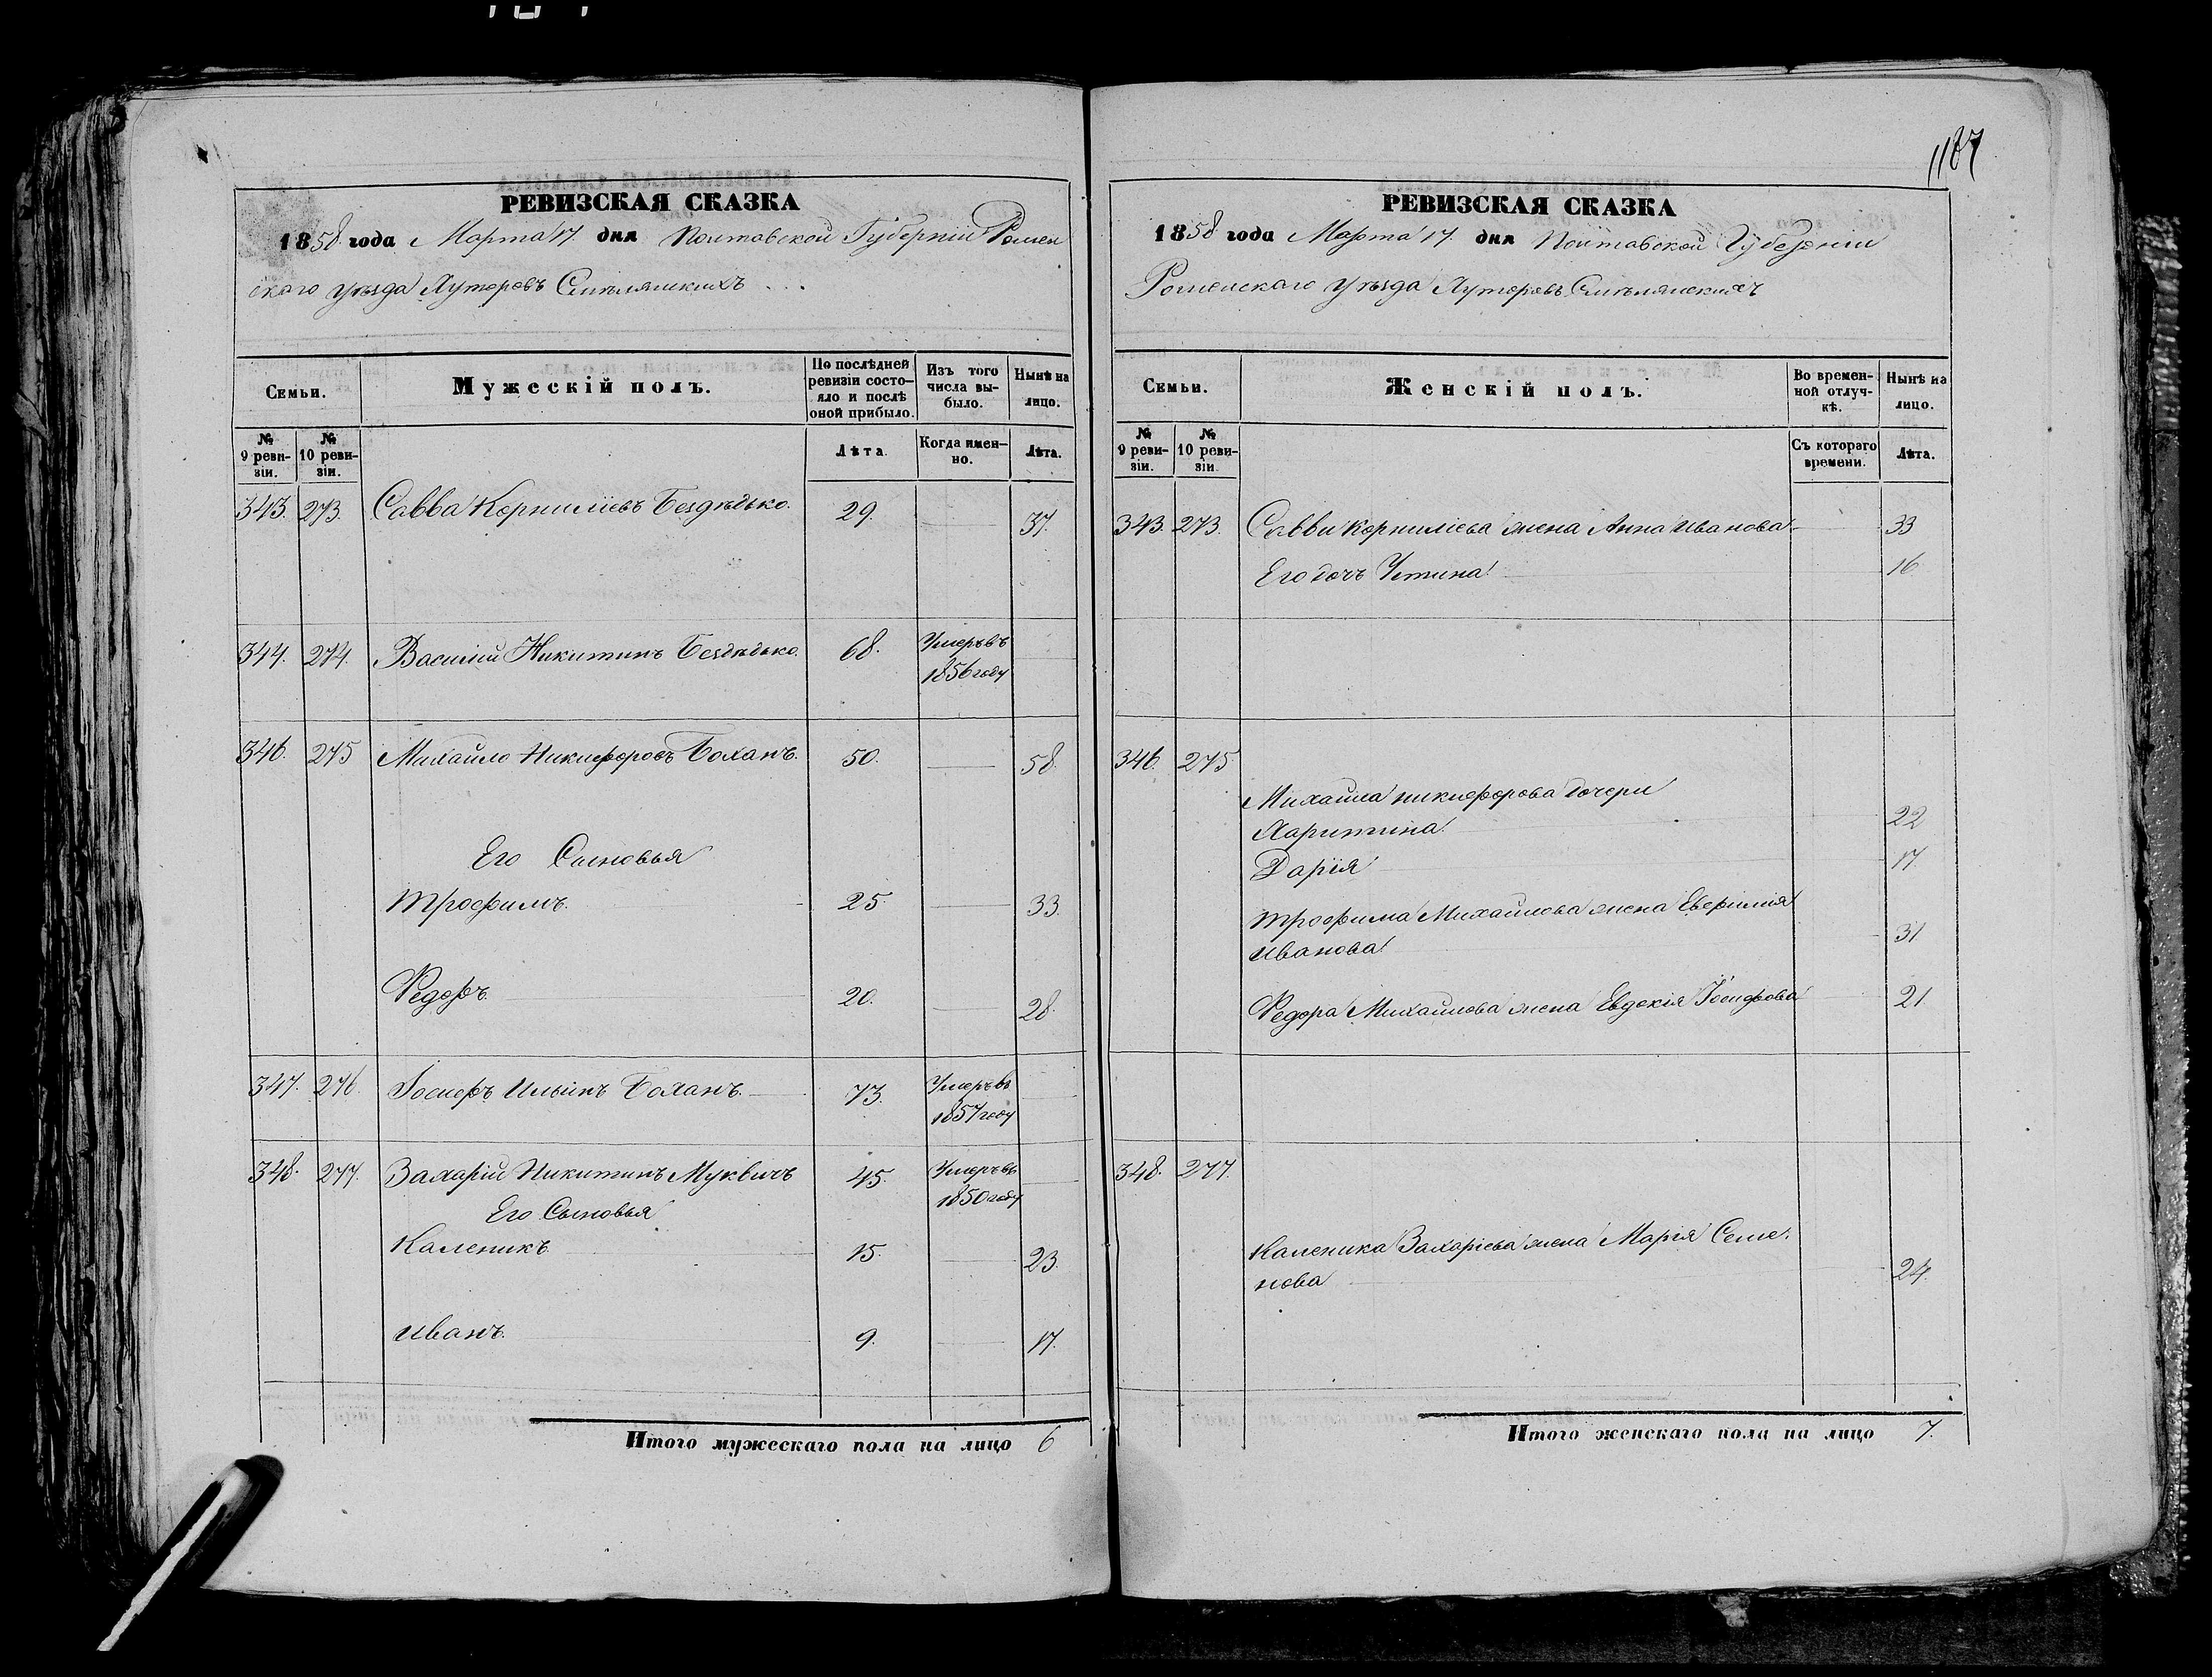 1187
РЕВИЗСКАЯ СКАЗКА
1858 года Марта 17 дня Полтавской Губерніи Ромен
скаго уѣзда Хуторовъ Смѣлянскихъ
Семьи.
Мужескій полъ.
По послѣдней ревизіи состояло и послѣ оной прибыло.
Изъ того числа выбыло.
Нынѣ на лицо.
№ 9 ревизіи.
№ 10 ревизіи.
Лѣта
Когда именно.
Лѣта.
343. 273. Савва Корниліевъ Бездѣдько. 29. 37.
344. 274. Василій Никитинъ Бездѣдько. 68. Умеръ въ
1856 году
346. 275 Михайло Никифоровъ Боханъ. 50. 58.
Его Сыновья
Трофимъ. 25. 33.
Федоръ. 20. 28.
347. 276. Іосифъ Ильинъ Боханъ. 73. Умеръ въ
1857 году
348. 277. Захарій Никитинъ Муквичъ 45. Умеръ въ
1850 году
Его Сыновья
Каленикъ 15. 23.
Иванъ. 9. 17.
Итого мужескаго пола на лицо 6
РЕВИЗСКАЯ СКАЗКА
1858 года Марта 17. дня Полтавской Губерніи
Роменскаго уѣзда Хуторовъ Смѣлянскихъ
Семьи.
Женскій полъ.
Во временной отлучкѣ.
Нынѣ на лицо.
№ 9 ревизіи.
№ 10 ревизіи.
Съ котораго времени.
Лѣта.
343. 273. Саввы Корниліева жена Анна Иванова 33
Его дочь Устина 16
346. 275.
Михайла Никифорова дочери
Харитина 22
Дарія 17.
Трофима Михайлова жена Евфимія
Иванова 31
Федора Михайлова жена Евдокія Іосифова 21
348. 277.
Каленика Захаріева жена Марія Семе-
нова 24.
Итого женскаго пола на лицо 7.